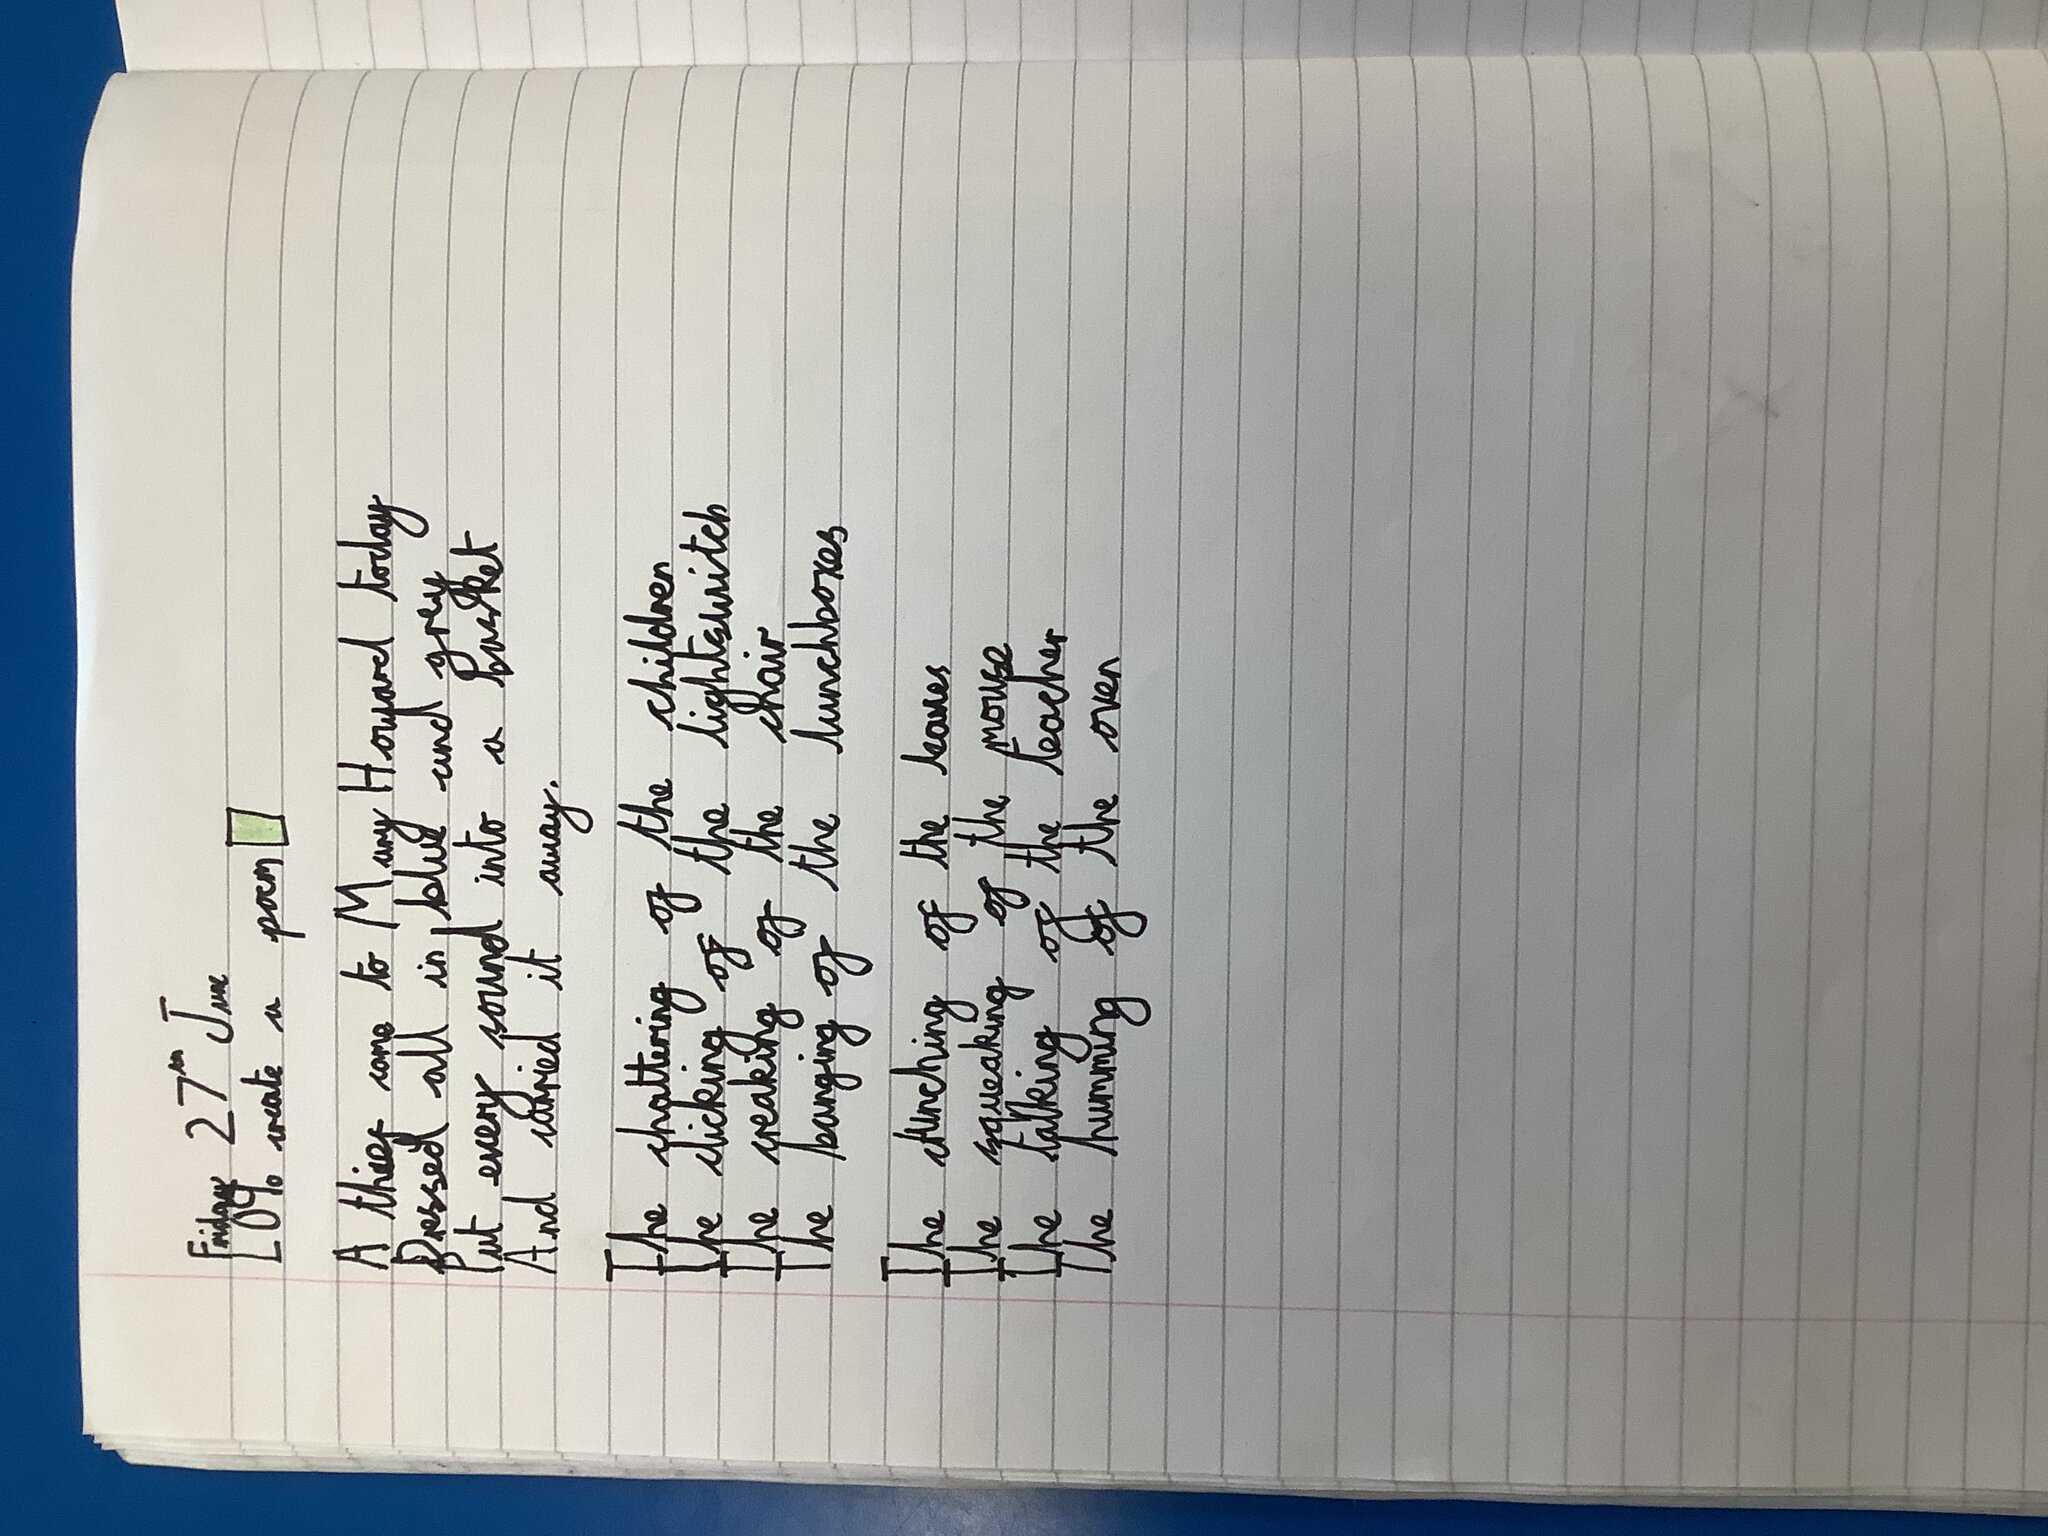 Friday 27th June
LO % create a poem
A thief came to Mary Howard today
Dressed all in blue and grey
Put every sound into a basket
And carried it away.
The chattering of the children
The clicking of the lightswitch
The creaking of the chair
The banging of the lunchboxes
The crunching of the leaves
The squeaking of the mouse
The talking of the teacher
The humming of the oven